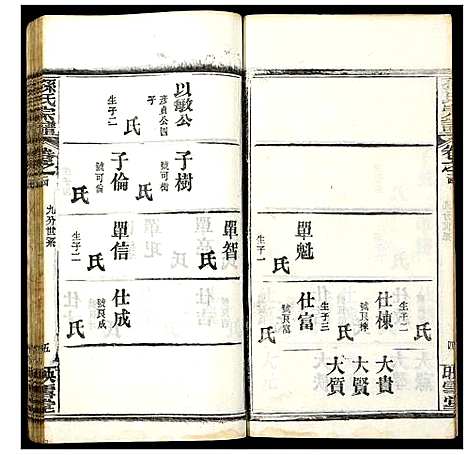 單魁
生子二
氏
仕棟
號良棟
生子二
氏
仕富
號良富
生子三
氏
大貴
大賢
大質
映雪堂
孫氏宗譜
卷之四
九分世系
五
以敏公
彥貞公四子
生子二
氏
子樹
氏
子倫
號可倫
氏
單智
氏
單信
生子二
氏
仕成
號良成
氏
映雪堂